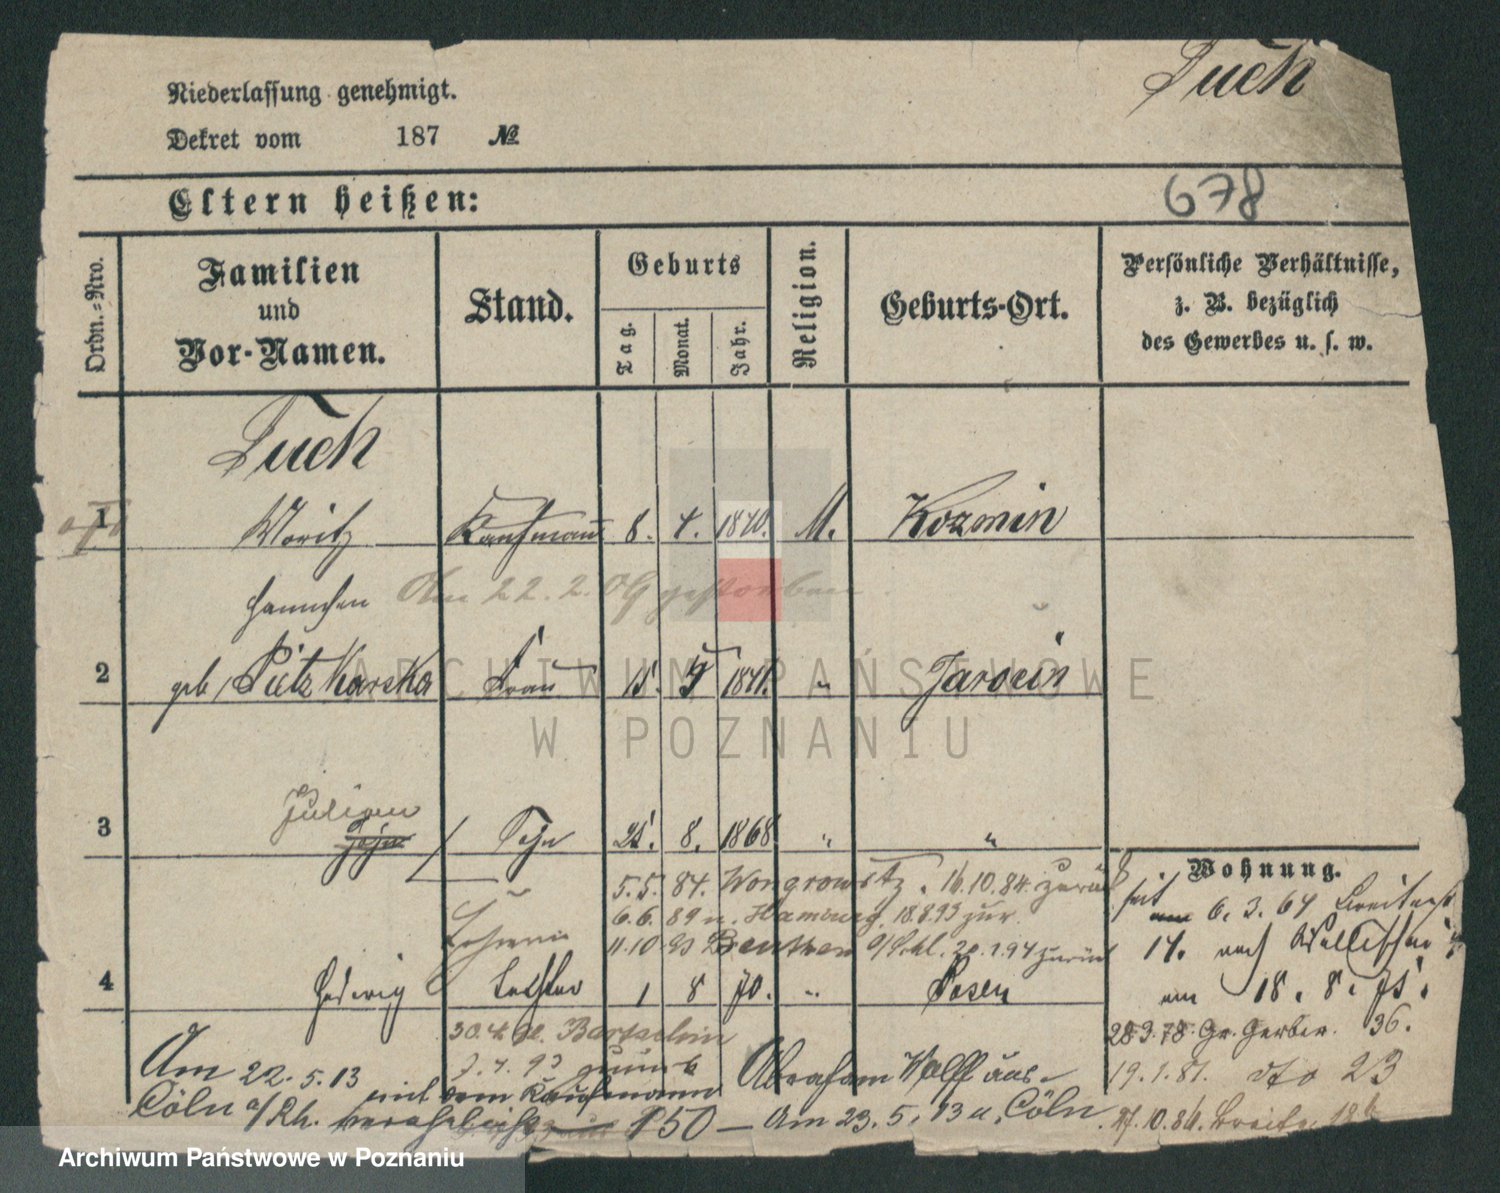 Tuch
Niederlassung genehmigt.
Dekret vom 187 №
Eltern heißen:
678
Ordn.-Nro.
Familien
und
Vor-Namen.
Stand.
Geburts
Tag.
Monat.
Jahr.
Religion.
Geburts-Ort.
Persönliche Verhältnisse,
z. B. bezüglich
des Gewerbes u. s. w.
Tuch
1 Moritz Kaufmann 8. 4. 1840. M. Kozmin
Hannchen Am 22.2.09 gestorben
2 geb. Frau 15. 1841. " Jarocin
Julian
3 Sohn 25. 8. 1868 " "
Wohnung.
5.5. 84. Wongrowitz. 16.10.84. zurück
seit 6. 3. 64 Breitestr
6.6. 89 n. Hamburg. 18.8.93 zur.
11.10.93 Beuthen O/Schl. 20.1.94 zurück
14. nach Wallischei
4 Hedwig Tochter 1 8 70. " Posen
am 18. 8. 75.
30.4.
28.9.78. Gr. Gerber. 36.
Am 22.5.13 mit dem Kaufmann Abraham Wolff aus
19.1.81. dto 23
Cöln a/Rh. 150 — Am 23.5.13 n. Cöln.
27.10.86. Breite
ARCHIWUM PAŃSTWOWE
W POZNANIU
Archiwum Państwowe w Poznaniu